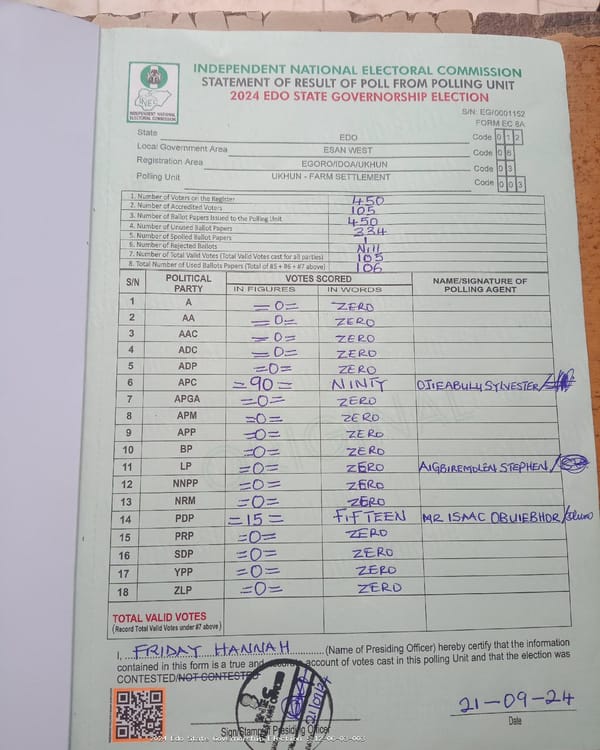 INDEPENDENT NATIONAL ELECTORAL COMMISSION
STATEMENT OF RESULT OF POLL FROM POLLING UNIT
2024 EDO STATE GOVERNORSHIP ELECTION
INEC
INDEPENDENT NATIONAL ELECTORAL COMMISSION
S/N: EG/0001152
FORM EC 8A
State EDO Code 0 1 2
Local Government Area ESAN WEST Code 0 6
Registration Area EGORO/IDOA/UKHUN Code 0 3
Polling Unit UKHUN - FARM SETTLEMENT Code 0 0 3
1. Number of Voters on the Register 450
2. Number of Accredited Voters 105
3. Number of Ballot Papers Issued to the Polling Unit 450
4. Number of Unused Ballot Papers 334
5. Number of Spoiled Ballot Papers 1
6. Number of Rejected Ballots Nill
7. Number of Total Valid Votes (Total Valid Votes cast for all parties) 105
8. Total Number of Used Ballots Papers (Total of #5 + #6 + #7 above) 106
S/N POLITICAL PARTY VOTES SCORED NAME/SIGNATURE OF POLLING AGENT
IN FIGURES IN WORDS
1 A =0= ZERO
2 AA =0= ZERO
3 AAC =0= ZERO
4 ADC =0= ZERO
5 ADP =0= ZERO
6 APC =90= NINTY OJIEABULU SYLVESTER/
7 APGA =0= ZERO
8 APM =0= ZERO
9 APP =0= ZERO
10 BP =0= ZERO
11 LP =0= ZERO AIGBIREMOLEN STEPHEN/
12 NNPP =0= ZERO
13 NRM =0= ZERO
14 PDP =15= FIFTEEN MR ISAAC OBUIEBHOR/
15 PRP =0= ZERO
16 SDP =0= ZERO
17 YPP =0= ZERO
18 ZLP =0= ZERO
TOTAL VALID VOTES
(Record Total Valid Votes under #7 above)
I, FRIDAY HANNAH (Name of Presiding Officer) hereby certify that the information
contained in this form is a true and accurate account of votes cast in this polling Unit and that the election was
CONTESTED/NOT CONTESTED
21-09-24
Sign/Stamp of Presiding Officer Date
2024 Edo State Governorship Election